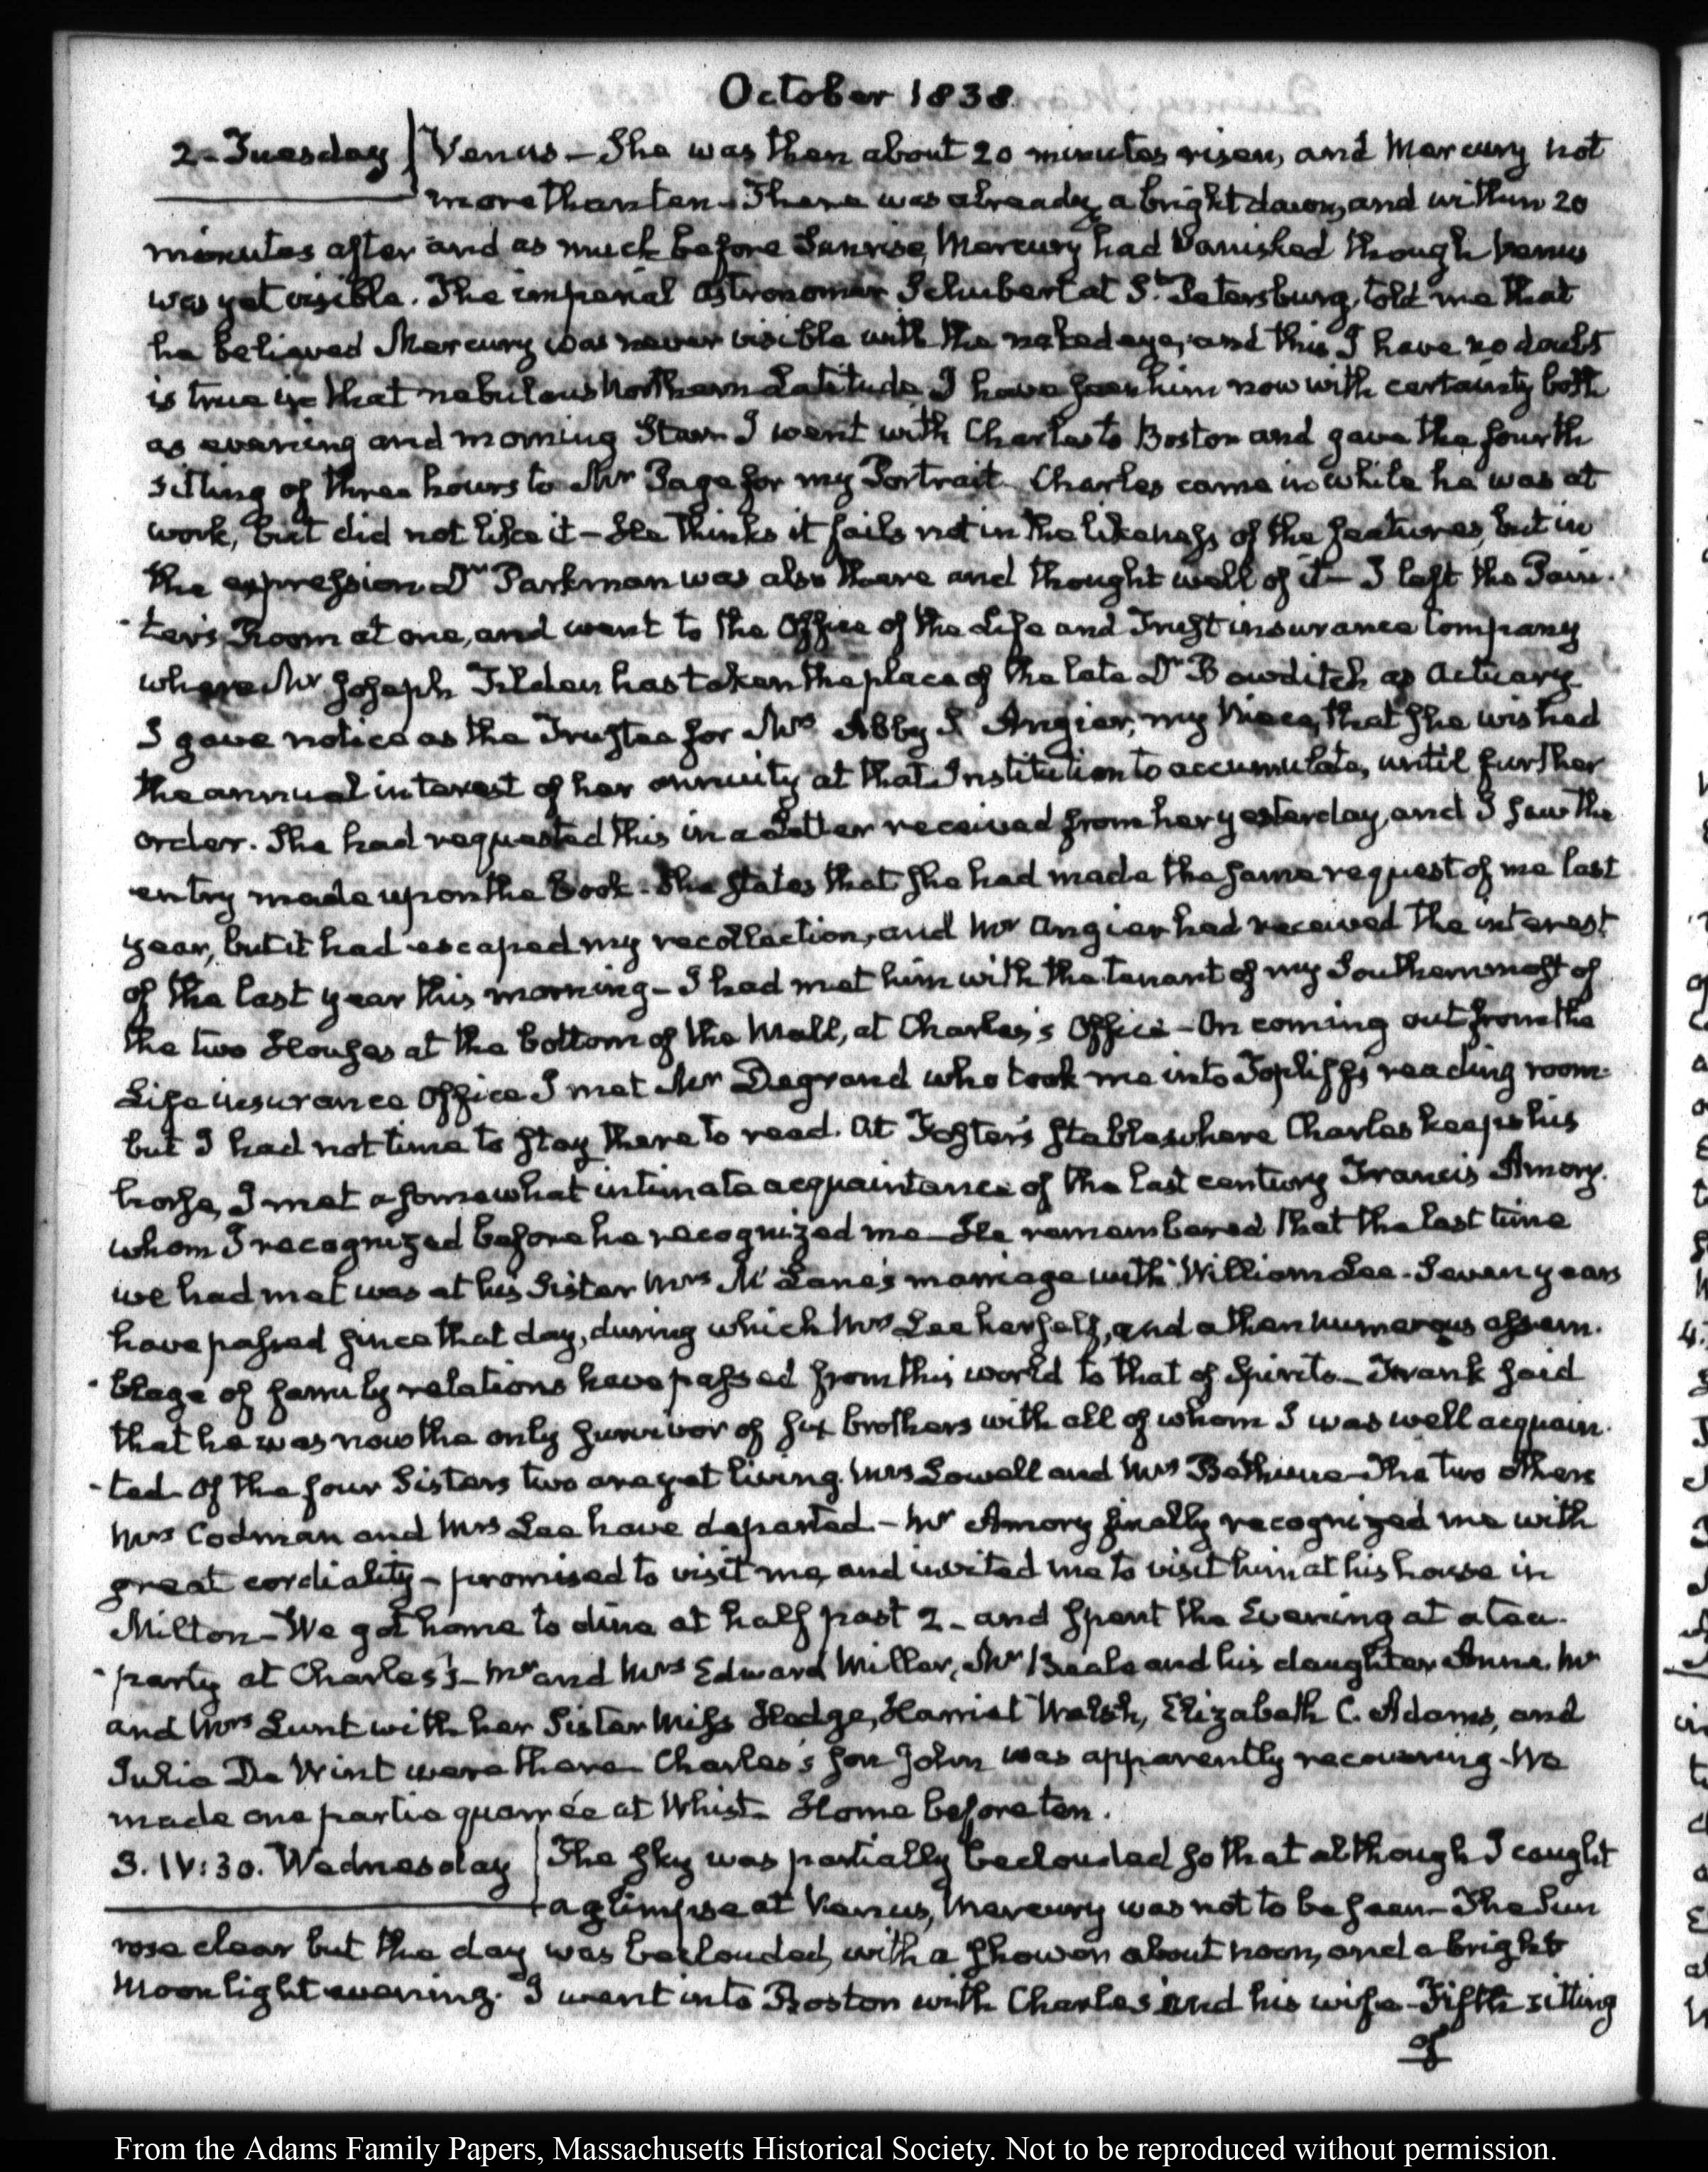 October 1838.
2. Tuesday Venus – She was then about 20 minutes risen, and Mercury not
more than ten. There was already a bright dawn, and within 20
minutes after and as much before Sunrise, Mercury had vanished though Venus
was yet visible. The imperial astronomer Schubert at St. Petersburg, told me that
he believed Mercury was never visible with the naked eye, and this I have no doubt
is true in that nebulous Northern Latitude. I have seen him now with certainty both
as evening and morning Star. I went with Charles to Boston and gave the fourth
sitting of three hours to Mr Page for my Portrait. Charles came in while he was at
work, but did not like it – He thinks it fails not in the likeness of the features, but in
the expression. Dr Parkman was also there and thought well of it – I left the Pain-
-ter's Room at one, and went to the Office of the Life and Trust insurance Company
where Mr Joseph Tilden has taken the place of the late Dr Bowditch as Actuary.
I gave notice as the Trustee for Mrs Abby S. Angier, my Niece, that she wished
the annual interest of her annuity at that Institution to accumulate, until further
order. She had requested this in a Letter received from her yesterday, and I saw the
entry made upon the Book. She states that she had made the same request of me last
year, but it had escaped my recollection, and Mr Angier had received the interest
of the last year this morning – I had met him with the tenant of my Southernmost of
the two Houses at the bottom of the Mall, at Charles's Office – On coming out from the
Life insurance Office I met Mr Degrand who took me into Topliff's reading room
but I had not time to stay there to read. At Foster's stable where Charles keeps his
horse, I met a somewhat intimate acquaintance of the last century Francis Amory.
whom I recognized before he recognized me – He remembered that the last time
we had met was at his Sister Mrs McLane's marriage with William Lee. Seven years
have passed since that day, during which Mrs Lee herself, and a then numerous assem-
-blage of family relations have passed from this world to that of Spirits – Frank said
that he was now the only survivor of six brothers with all of whom I was well acquain-
-ted. Of the four Sisters two are yet living. Mrs Lowell and Mrs Bethune – The two others
Mrs Codman and Mrs Lee have departed – Mr Amory finally recognized me with
great cordiality – promised to visit me, and invited me to visit him at his house in
Milton – We got home to dine at half past 2 – and spent the Evening at a tea-
-party at Charles's – Mr and Mrs Edward Miller, Mr Beale and his daughter Anne. Mr
and Mrs Lunt with her Sister Miss Hedge, Harriet Welsh, Elizabeth C. Adams, and
Julia De Wint were there – Charles's son John was apparently recovering – We
made one partie quarrée at Whist – Home before ten.
3. IV:30. Wednesday The sky was partially beclouded so that although I caught
a glimpse at Venus, Mercury was not to be seen – The Sun
rose clear but the day was beclouded, with a shower about noon, and a bright
Moonlight evening. I went into Boston with Charles and his wife – Fifth sitting
of
From the Adams Family Papers, Massachusetts Historical Society. Not to be reproduced without permission.